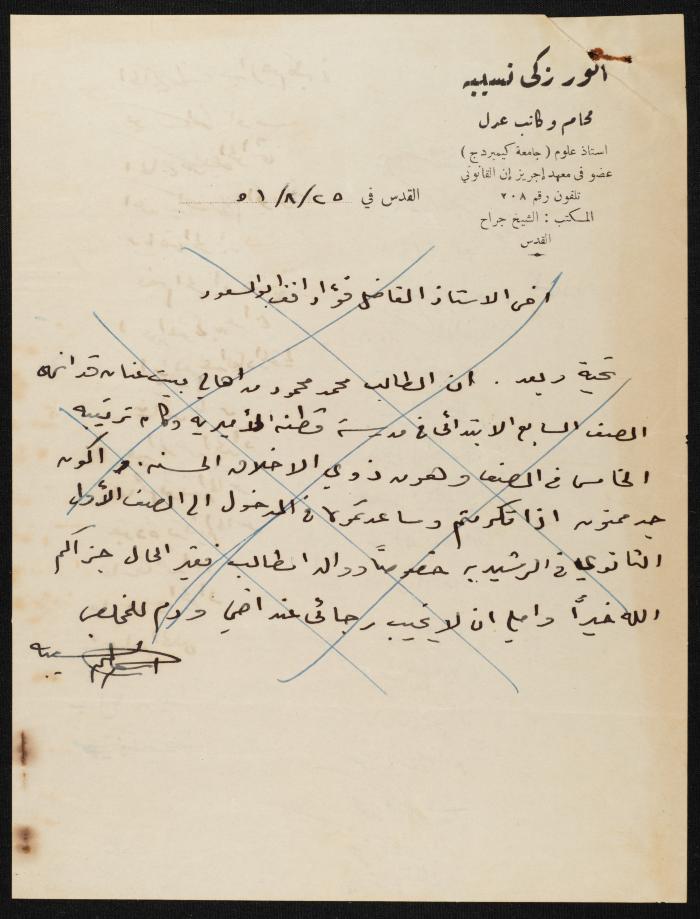 انور زكي نسيبه
محام وكاتب عدل
استاذ علوم ( جامعة كيمبردج )
عضو في معهد إجريز إن القانوني
تلفون رقم ٢٠٨
المكتب : الشيخ جراح
القدس
القدس في ٢٥/٨/٥١
اخي الاستاذ الفاضل فؤاد افندي ابو السعود
تحية وبعد . ان الطالب محمد محمود من اهالي بيت عنان قد انهى
الصف السابع الابتدائي في مدرسة قطنه الأميريه وكان ترتيبه
الخامس في الصف وهو من ذوي الاخلاق الحسنه . و اكون
جد ممنون اذا تكرمتم وساعدتموه في الدخول الى الصف الأول
الثانوي في الرشيديه خصوصاً ووالد الطالب فقير الحال جزاكم
الله خيراً واملي ان لا يخيب رجائي عند اخي ودم للمخلص
نسيبه